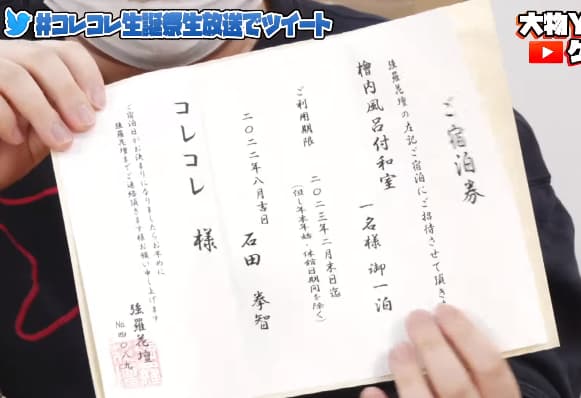 #コレコレ生誕祭生放送でツイート
大物Y
ご宿泊券
強羅花壇の左記ご宿泊にご招待させて頂き
檜内風呂付和室 一名様 御一泊
ご利用期限 二〇二三年二月末日迄
(但し年末年始・休館日期間を除く)
二〇二二年八月吉日 石田 拳智
コレコレ 様
ご宿泊日がお決まりになりましたらお早めに
強羅花壇までご連絡頂きます様お願い申し上げます
強羅花壇
No.四〇八九